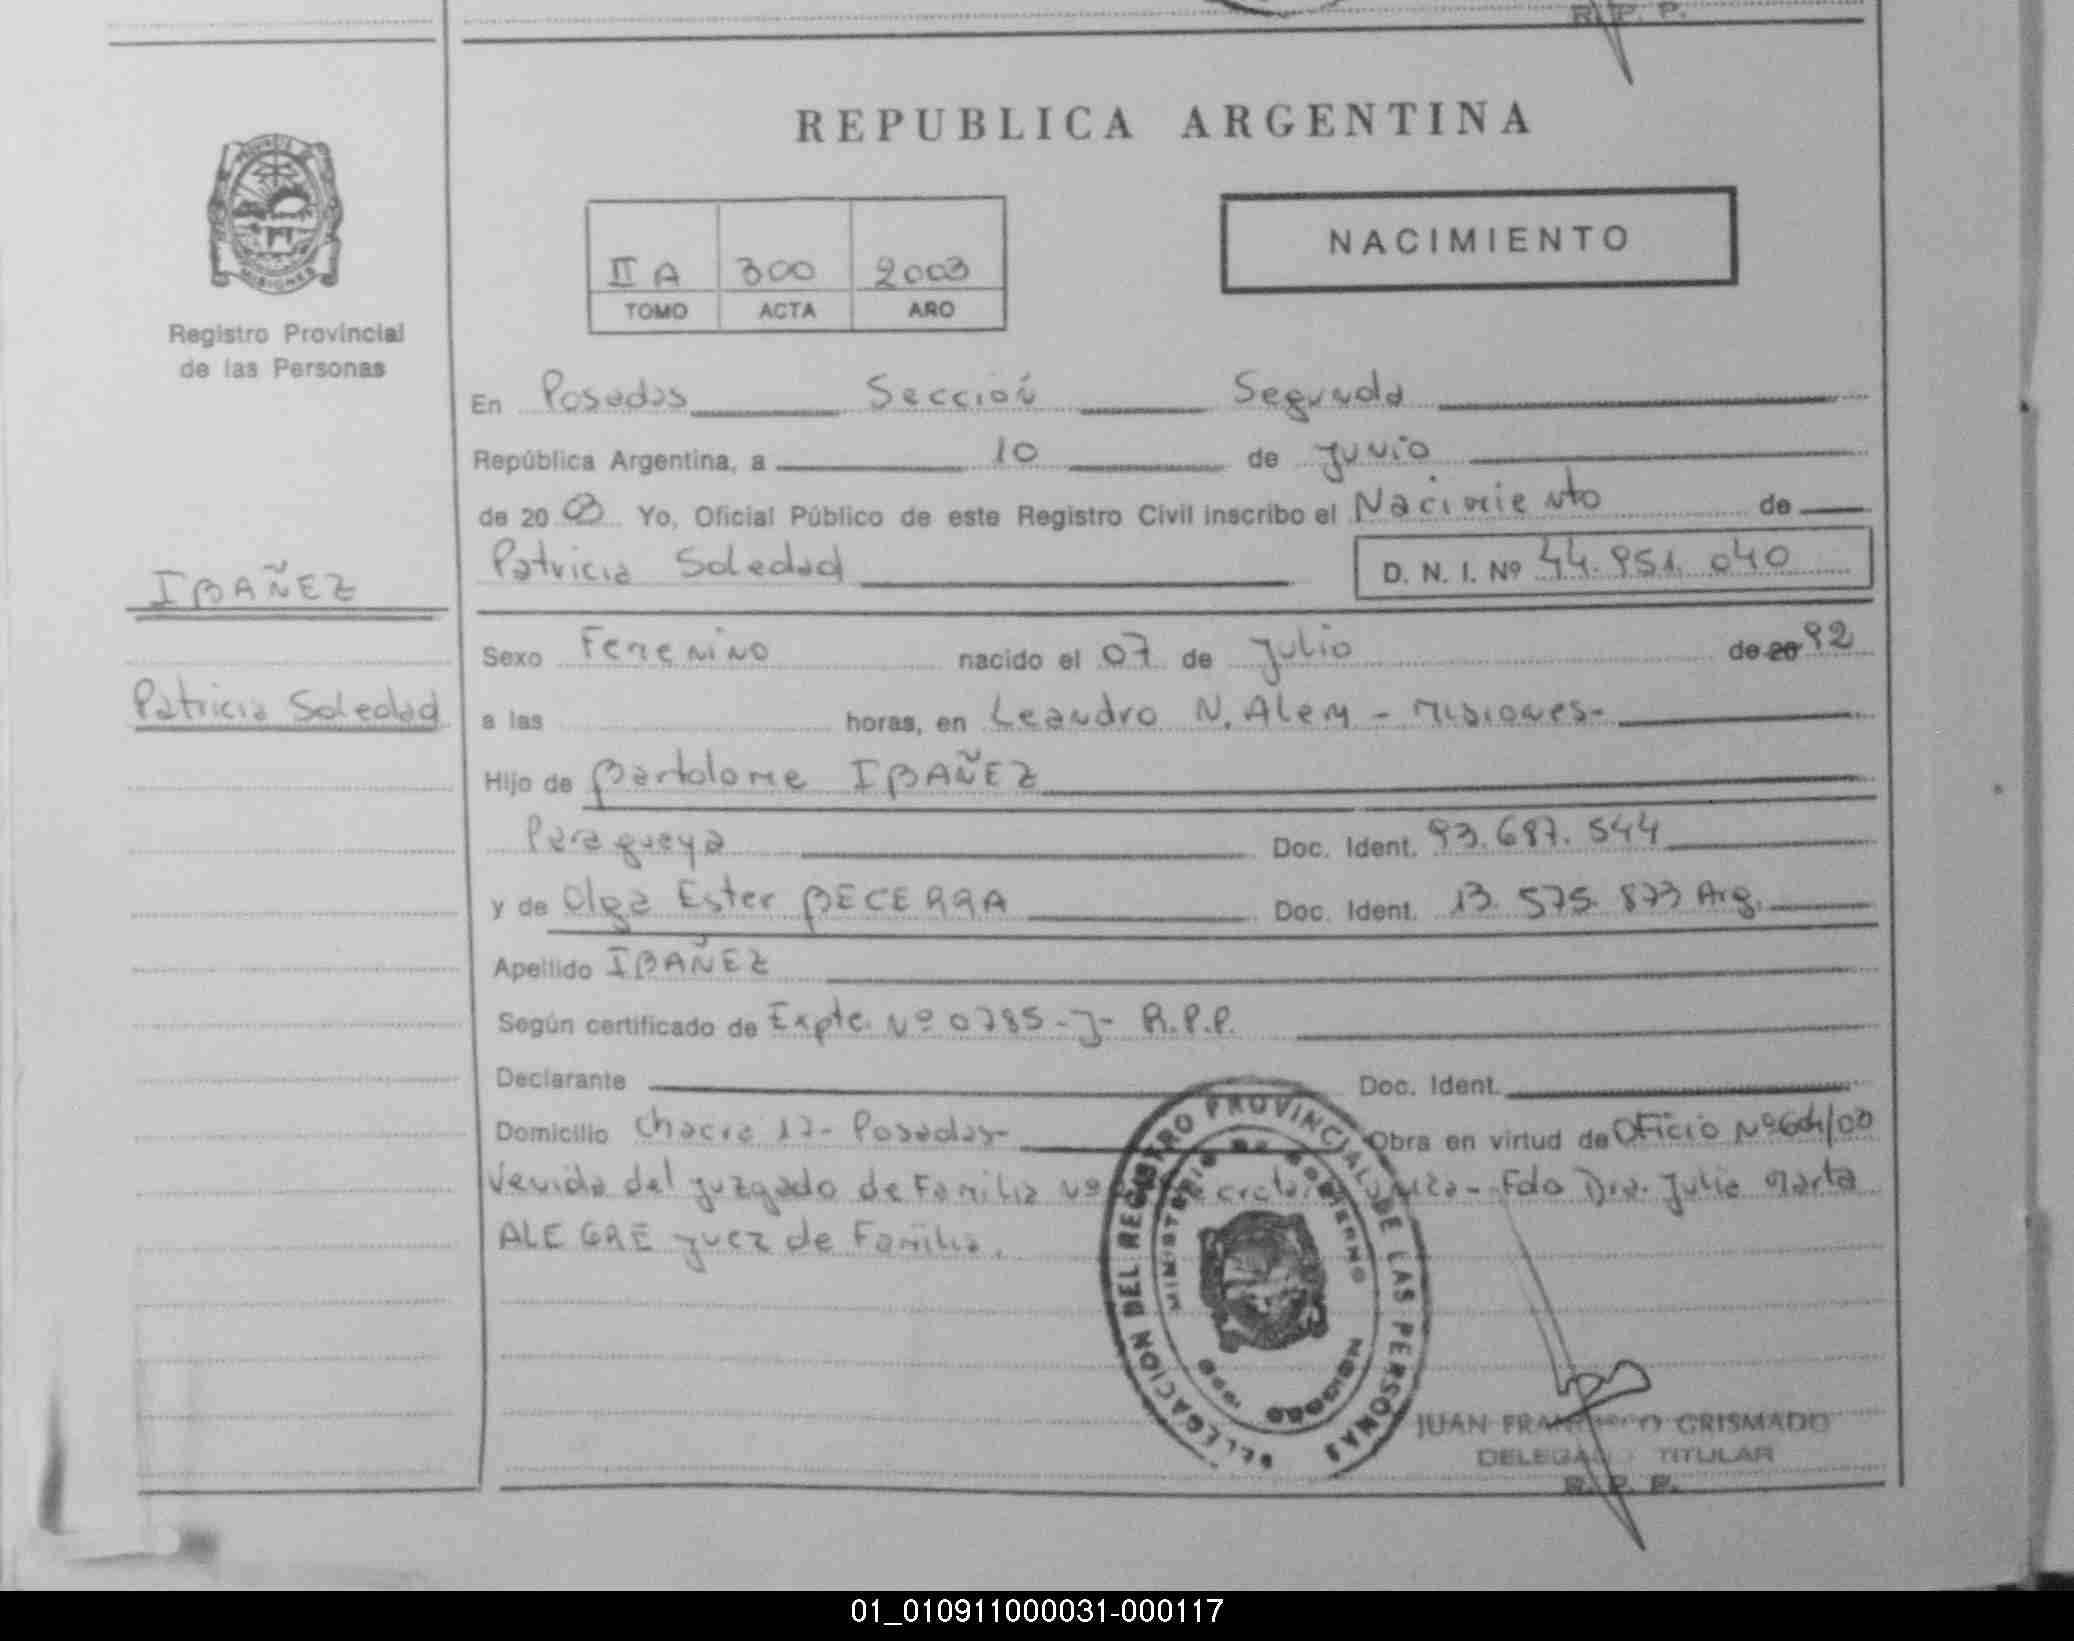 R. P. P.
REPUBLICA ARGENTINA
NACIMIENTO
II A 300 2003
TOMO ACTA AÑO
PROVINCIA DE MISIONES
Registro Provincial
de las Personas
IBAÑEZ
Patricia Soledad
En Posadas Sección Segunda
República Argentina, a 10 de Junio
de 20 03 Yo, Oficial Público de este Registro Civil inscribo el Nacimiento de
Patricia Soledad D. N. I. Nº 44.951.040
Sexo Femenino nacido el 07 de Julio de 20 92
a las horas, en Leandro N. Alem - Misiones-
Hijo de Bartolome IBAÑEZ
Paraguaya Doc. Ident. 93.687.544
y de Olga Ester BECERRA Doc. Ident. 13.575.873 Arg.
Apellido IBAÑEZ
Según certificado de Expte. Nº 0785-J- R.P.P.
Declarante Doc. Ident.
Domicilio Chacra 17- Posadas- Obra en virtud de Oficio Nº
Venida del Juzgado de Familia Nº - Fdo Dra. Julia Marta
ALEGRE Juez de Familia.
DELEGACION DEL REGISTRO PROVINCIAL DE LAS PERSONAS
MINISTERIO DE GOBIERNO
JUAN FRANCISCO GRISMADO
DELEGADO TITULAR
R. P. P.
01_010911000031-000117